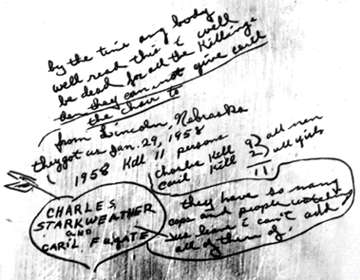 by the time any body
will read this i well
be dead for all the killings
then they can not give caril
the chair to
from Lincoln, Nebraska
they got us Jan. 29, 1958
1958 Kill 11 persons
Charlie Kill 9 all men
Caril Kill 2 all girls
11
they have so many
cops and people
we leave i can't add
all of them of.
CHARLES
STARKWEATHER
AND
CARIL FUGATE